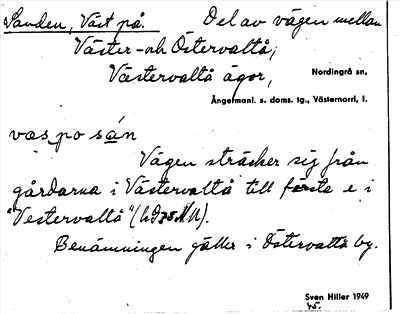 Sanden, Väst på. Del av vägen mellan
Väster- och Östervattå;
Västervattå ägor, Nordingrå sn,
Ångermanl. s. doms. tg., Västernorrl. l.
vas po sán
Vägen sträcker sig från
gårdarna i Västervattå till första e i
"Vestervattå"
Benämningen gäller i Östervattå by.
Sven Hiller 1949